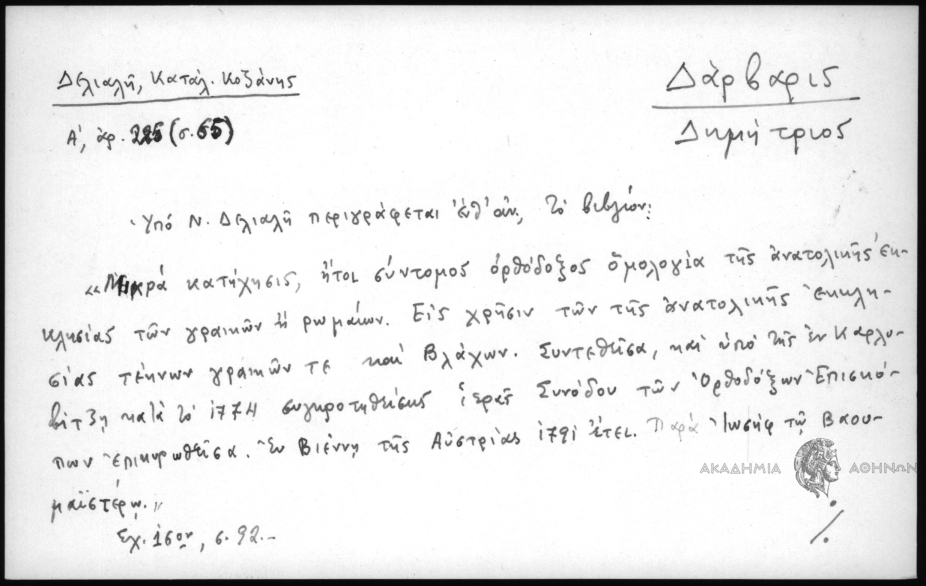 Δελιαλῆ, Κατάλ. Κοζάνης
Α', ἀρ. 225 (σ. 65)
Δάρβαρις
Δημήτριος
Ὑπό Ν. Δελιαλῆ περιγράφεται τὸ βιβλίον:
«Μικρά κατήχησις, ἤτοι σύντομος ὀρθόδοξος ὁμολογία τῆς ἀνατολικῆς ἐκ-
κλησίας τῶν γραικῶν ἤ ρωμαίων. Εἰς χρῆσιν τῶν τῆς ἀνατολικῆς ἐκκλη-
σίας τέκνων γραικῶν τε καί Βλάχων. Συντεθεῖσα, καί ὑπό τῆς ἐν Καρλο-
βίτζη κατὰ τὸ 1774 συγκροτηθείσης ἱερᾶς Συνόδου τῶν Ὀρθοδόξων Ἐπισκό-
πων ἐπικυρωθεῖσα. Ἐν Βιέννῃ τῆς Αὐστρίας 1791 ἔτει. Παρά Ἰωσήφ τῷ Βαου-
μαϊστέρῳ.»
Σχ. 16ον, σ. 92.-
ΑΚΑΔΗΜΙΑ ΑΘΗΝΩΝ
./.